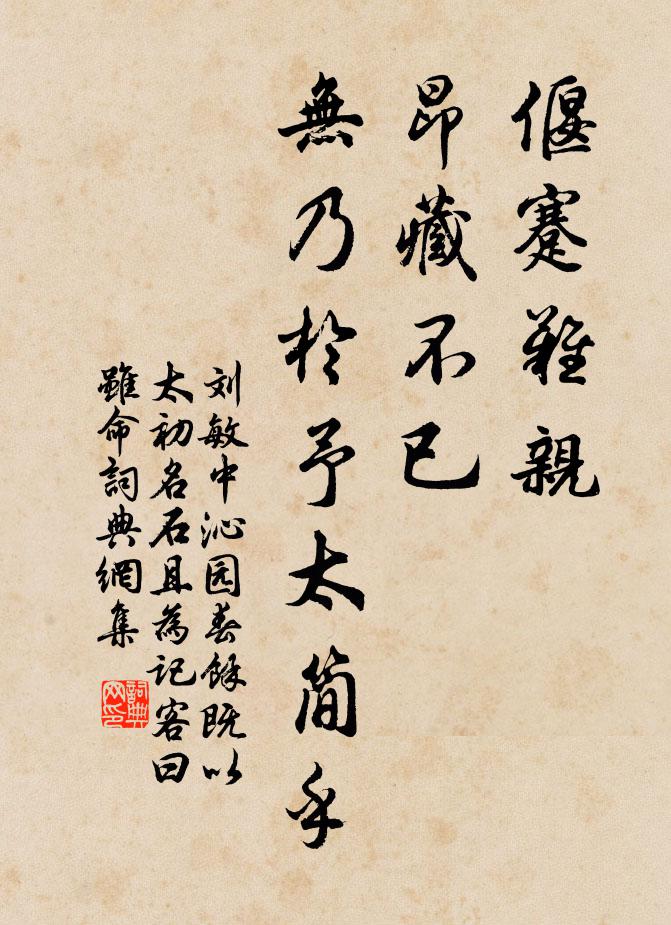 偃蹇難親
昂藏不已
無乃於予太簡乎
刘敏中沁园春餘既以
太初名石且為記客曰
雖命詞典網集
詞典
网印